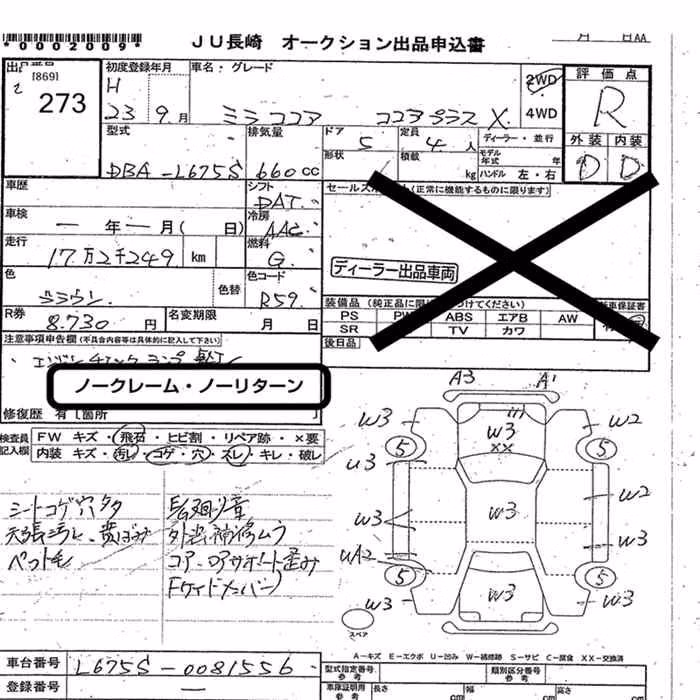 *0002009* JU長崎 オークション出品申込書 月 日AA
[869]
273
初度登録年月 H 23 9 月
車名・グレード
ミラココア ココアプラス X
2WD
4WD
評価点
R
外装 内装
D D
型式 DBA-L675S
排気量 660 cc
ドア 5
形状
定員 4 人
積載 kg
ディーラー・並行
モデル年式 年
ハンドル 左・右
車歴
シフト DAT
セールスポイント (正常に機能するものに限ります)
車検 ー年ー月( 日)
冷房 AAC
走行 17万2千249 km
燃料 G
ディーラー出品車両
色
色替
色コード R59
R券 8.730 円
名変期限 月 日
装備品
PS ABS エアB AW
SR TV カワ
後日品
注意事項申告欄 (不具合内容等は具体的に記入して下さい)
エンジンチェックランプ
ノークレーム・ノーリターン
修復歴 有 [箇所 ]
検査員記入欄
FW キズ・飛石・ヒビ割・リペア跡・×要
内装 キズ・汚れ・コゲ・穴・ズレ・キレ・破レ
シートコゲ穴多
天張汚れ、黄ばみ
ペット毛
外装補修ムラ
コア、コアサポート歪み
A3 A1
W3 W3 W2
XX
5 5
U3
W2
W3 W3
W3
UA2
5 5
W3 W3 W3
スペア
A-キズ E-エクボ U-凹み W-補修跡 S-サビ C-腐食 XX-交換済
車台番号 L675S-0081556
登録番号 ー
型式指定番号 参考
類別区分番号 参考
車庫証明用 参考
長さ cm
幅 cm
高さ